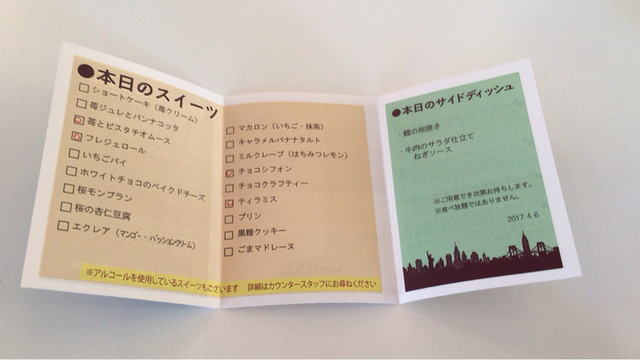 ●本日のスイーツ
ショートケーキ（苺クリーム）
苺ジュレとパンナコッタ
苺とピスタチオムース
フレジェロール
いちごパイ
ホワイトチョコのベイクドチーズ
桜モンブラン
桜の杏仁豆腐
エクレア（マンゴー・パッションクリーム）
マカロン（いちご・抹茶）
キャラメルバナナタルト
ミルクレープ（はちみつレモン）
チョコシフォン
チョコクラフティー
ティラミス
プリン
黒糖クッキー
ごまマドレーヌ
※アルコールを使用しているスイーツもございます　詳細はカウンタースタッフにお尋ねください
●本日のサイドディッシュ
・鰆の桜焼き
・牛肉のサラダ仕立て
ねぎソース
※ご用意でき次第お持ちします。
※食べ放題ではありません。
2017. 4. 6